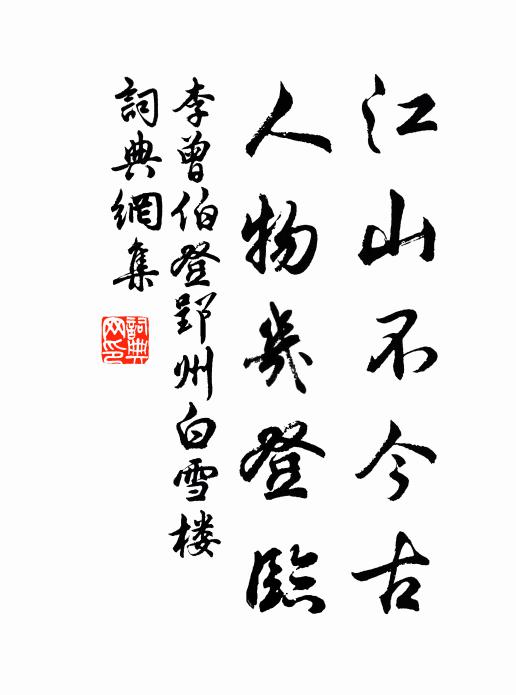 江山不今古
人物幾登臨
李曾伯登郢州白雪楼
詞典網集
詞典網印